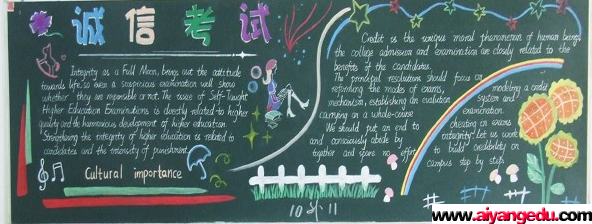 诚信考试
Integrity as a Full Moon, brings out the attitude
towards life, so even a suspicious examination will show
whether they are reponsible or not. The issue of Self-taught
Higher Education Examinations is directly related to higher
quality and the harmonious development of higher education.
Strengthing the integrity of higher education is related to
candidates and the intensity of punishment.
Cultural importance
Credit is the unique moral phenomenon of human beings
the college admission and examination are closely related to the
benefits of the candidates.
The principal resolutions should focus on
reforming the modes of exams, modeling a credit
mechanism, establishing an evaluation system and
carrying on a whole-course examination.
We should put an end to cheating on exams
and consciously abide by integrity. Let us work
together and spare no effort to build credibility on
campus step by step.
10 11
www.aiyangedu.com